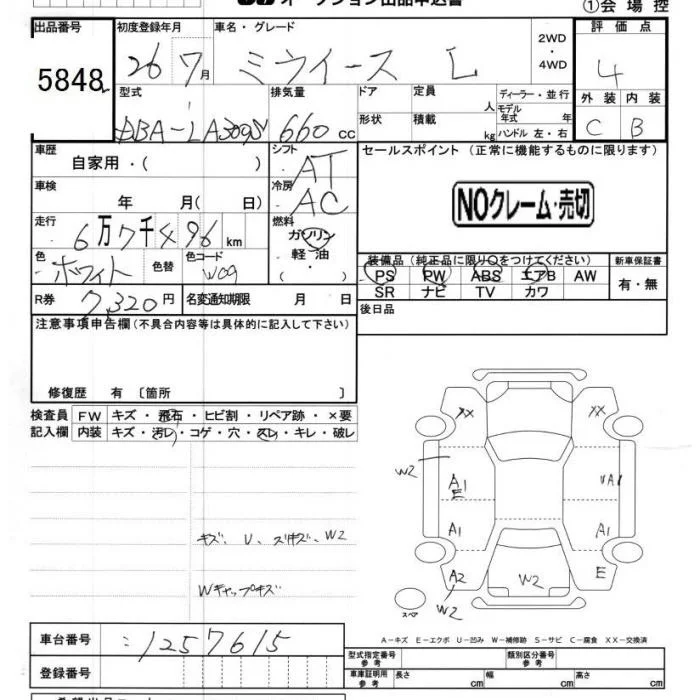 ①会場控
出品番号 初度登録年月 車名・グレード 2WD・4WD 評価点
5848 26 7月 ミライース L 4
型式 排気量 ドア 定員 人 ディーラー・並行 外装 内装
DBA-LA300S 660cc 形状 積載 kg モデル年式 年 ハンドル 左・右 C B
車歴 自家用・( ) シフト AT セールスポイント (正常に機能するものに限ります)
車検 年 月( 日) 冷房 AC
NOクレーム・売切
走行 6万7千496km 燃料 ガソリン・軽油・( )
色 ホワイト 色替 色コード W09
装備品 (純正品に限り○をつけてください) 新車保証書
PS PW ABS エアB AW 有・無
SR ナビ TV カワ
R券 7,320円 名変通知期限 月 日
後日品
注意事項申告欄(不具合内容等は具体的に記入して下さい)
修復歴 有 〔箇所 〕
検査員 FW キズ・飛石・ヒビ割・リペア跡・×要
記入欄 内装 キズ・汚レ・コゲ・穴・スレ・キレ・破レ
XX XX
W2
A1 E
A1
A1 A1
A2 W2 E
W2
キズ、U、スリキズ、W2
Wキャップキズ
スペア
A-キズ E-エクボ U-凹み W-補修跡 S-サビ C-腐食 XX-交換済
車台番号 1257615
登録番号
型式指定番号 参考 類別区分番号 参考
車庫証明用 参考 長さ cm 幅 cm 高さ cm